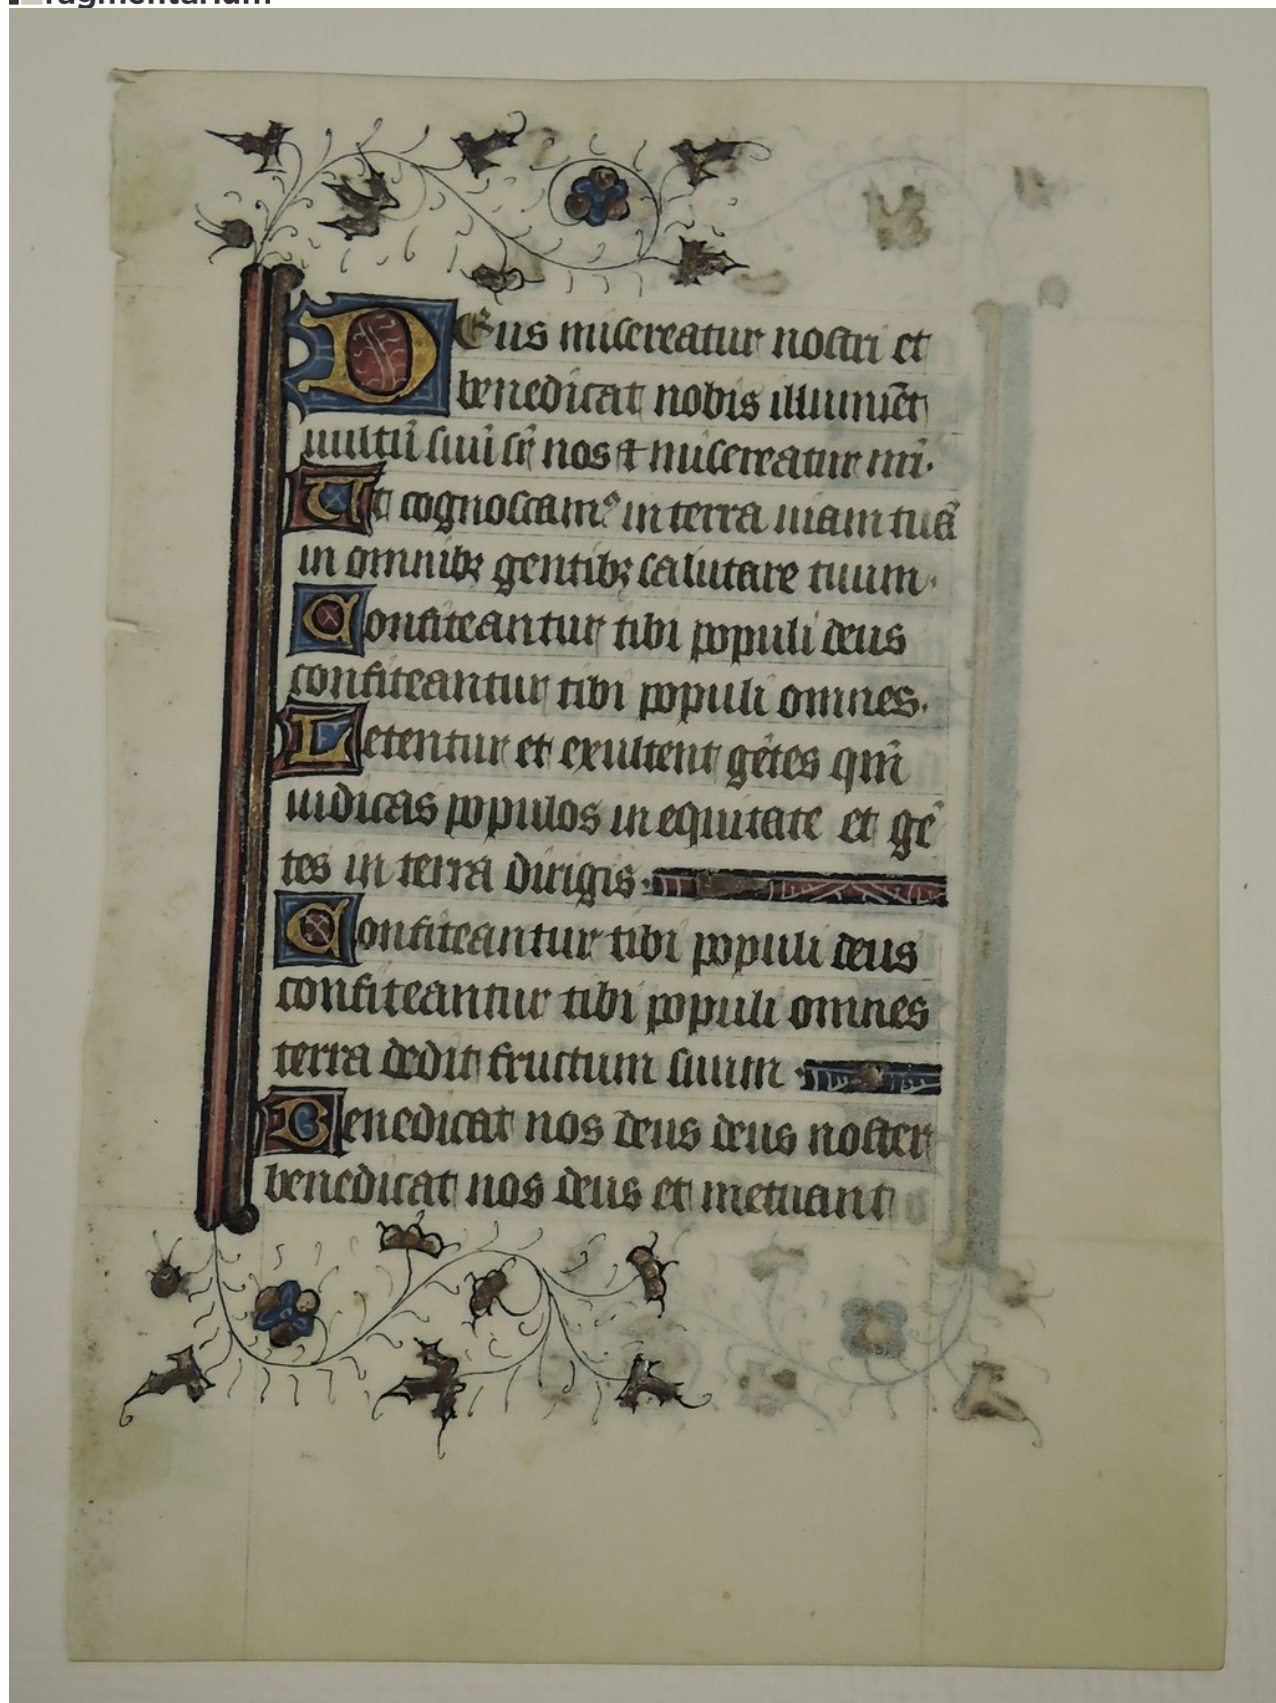 Deus misereatur nostri et
benedicat nobis illuminet
uultū suū sr̄ nos et misereatur nr̄i.
Ut cognoscamꝰ in terra uiam tuā
in omnibꝫ gentibꝫ salutare tuum.
Confiteantur tibi populi deus
confiteantur tibi populi omnes.
Letentur et exultent gētes qm̄
iudicas populos in equitate et gē
tes in terra dirigis.
Confiteantur tibi populi deus
confiteantur tibi populi omnes
terra dedit fructum suum.
Benedicat nos deus deus noster
benedicat nos deus et metuant